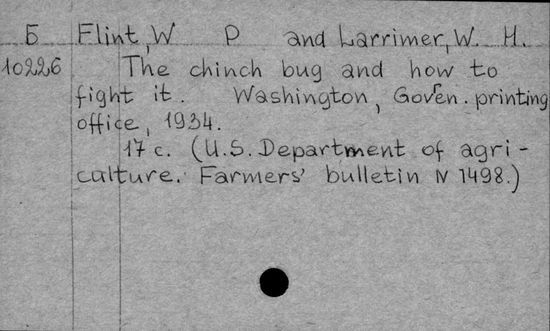 Б Flint, W P and Larrimer, W. H.
10226 The chinch bug and how to
fight it. Washington, Govern. printing
office, 1934.
17 c. (U.S. Department of agri-
culture. Farmers' bulletin N 1498.)